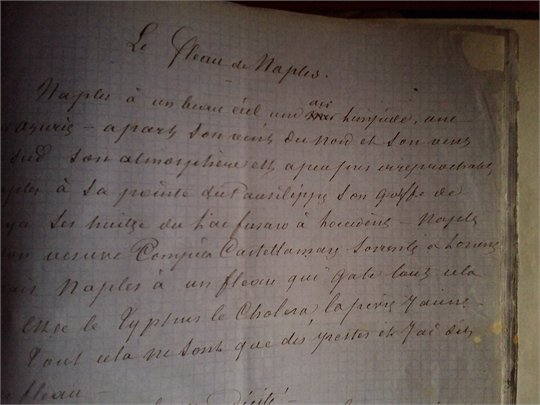 Le fleau de Naples.
Naples à un beau ciel une air limpide, une
apart son vent du nord et son vent
sud son atmosphère est a peu près irreprochable
à sa pointe du Pausilippe son golfe de
ses huitre du lac fusaro à hocident - Naples
vesuve Compeia Castellamary Sorrente a
Naples à un fleau qui gate tout cela
le Typhus le Cholera la fievre Jaune -
Tout cela ne sont que des pestes et J'ai dit
fleau -